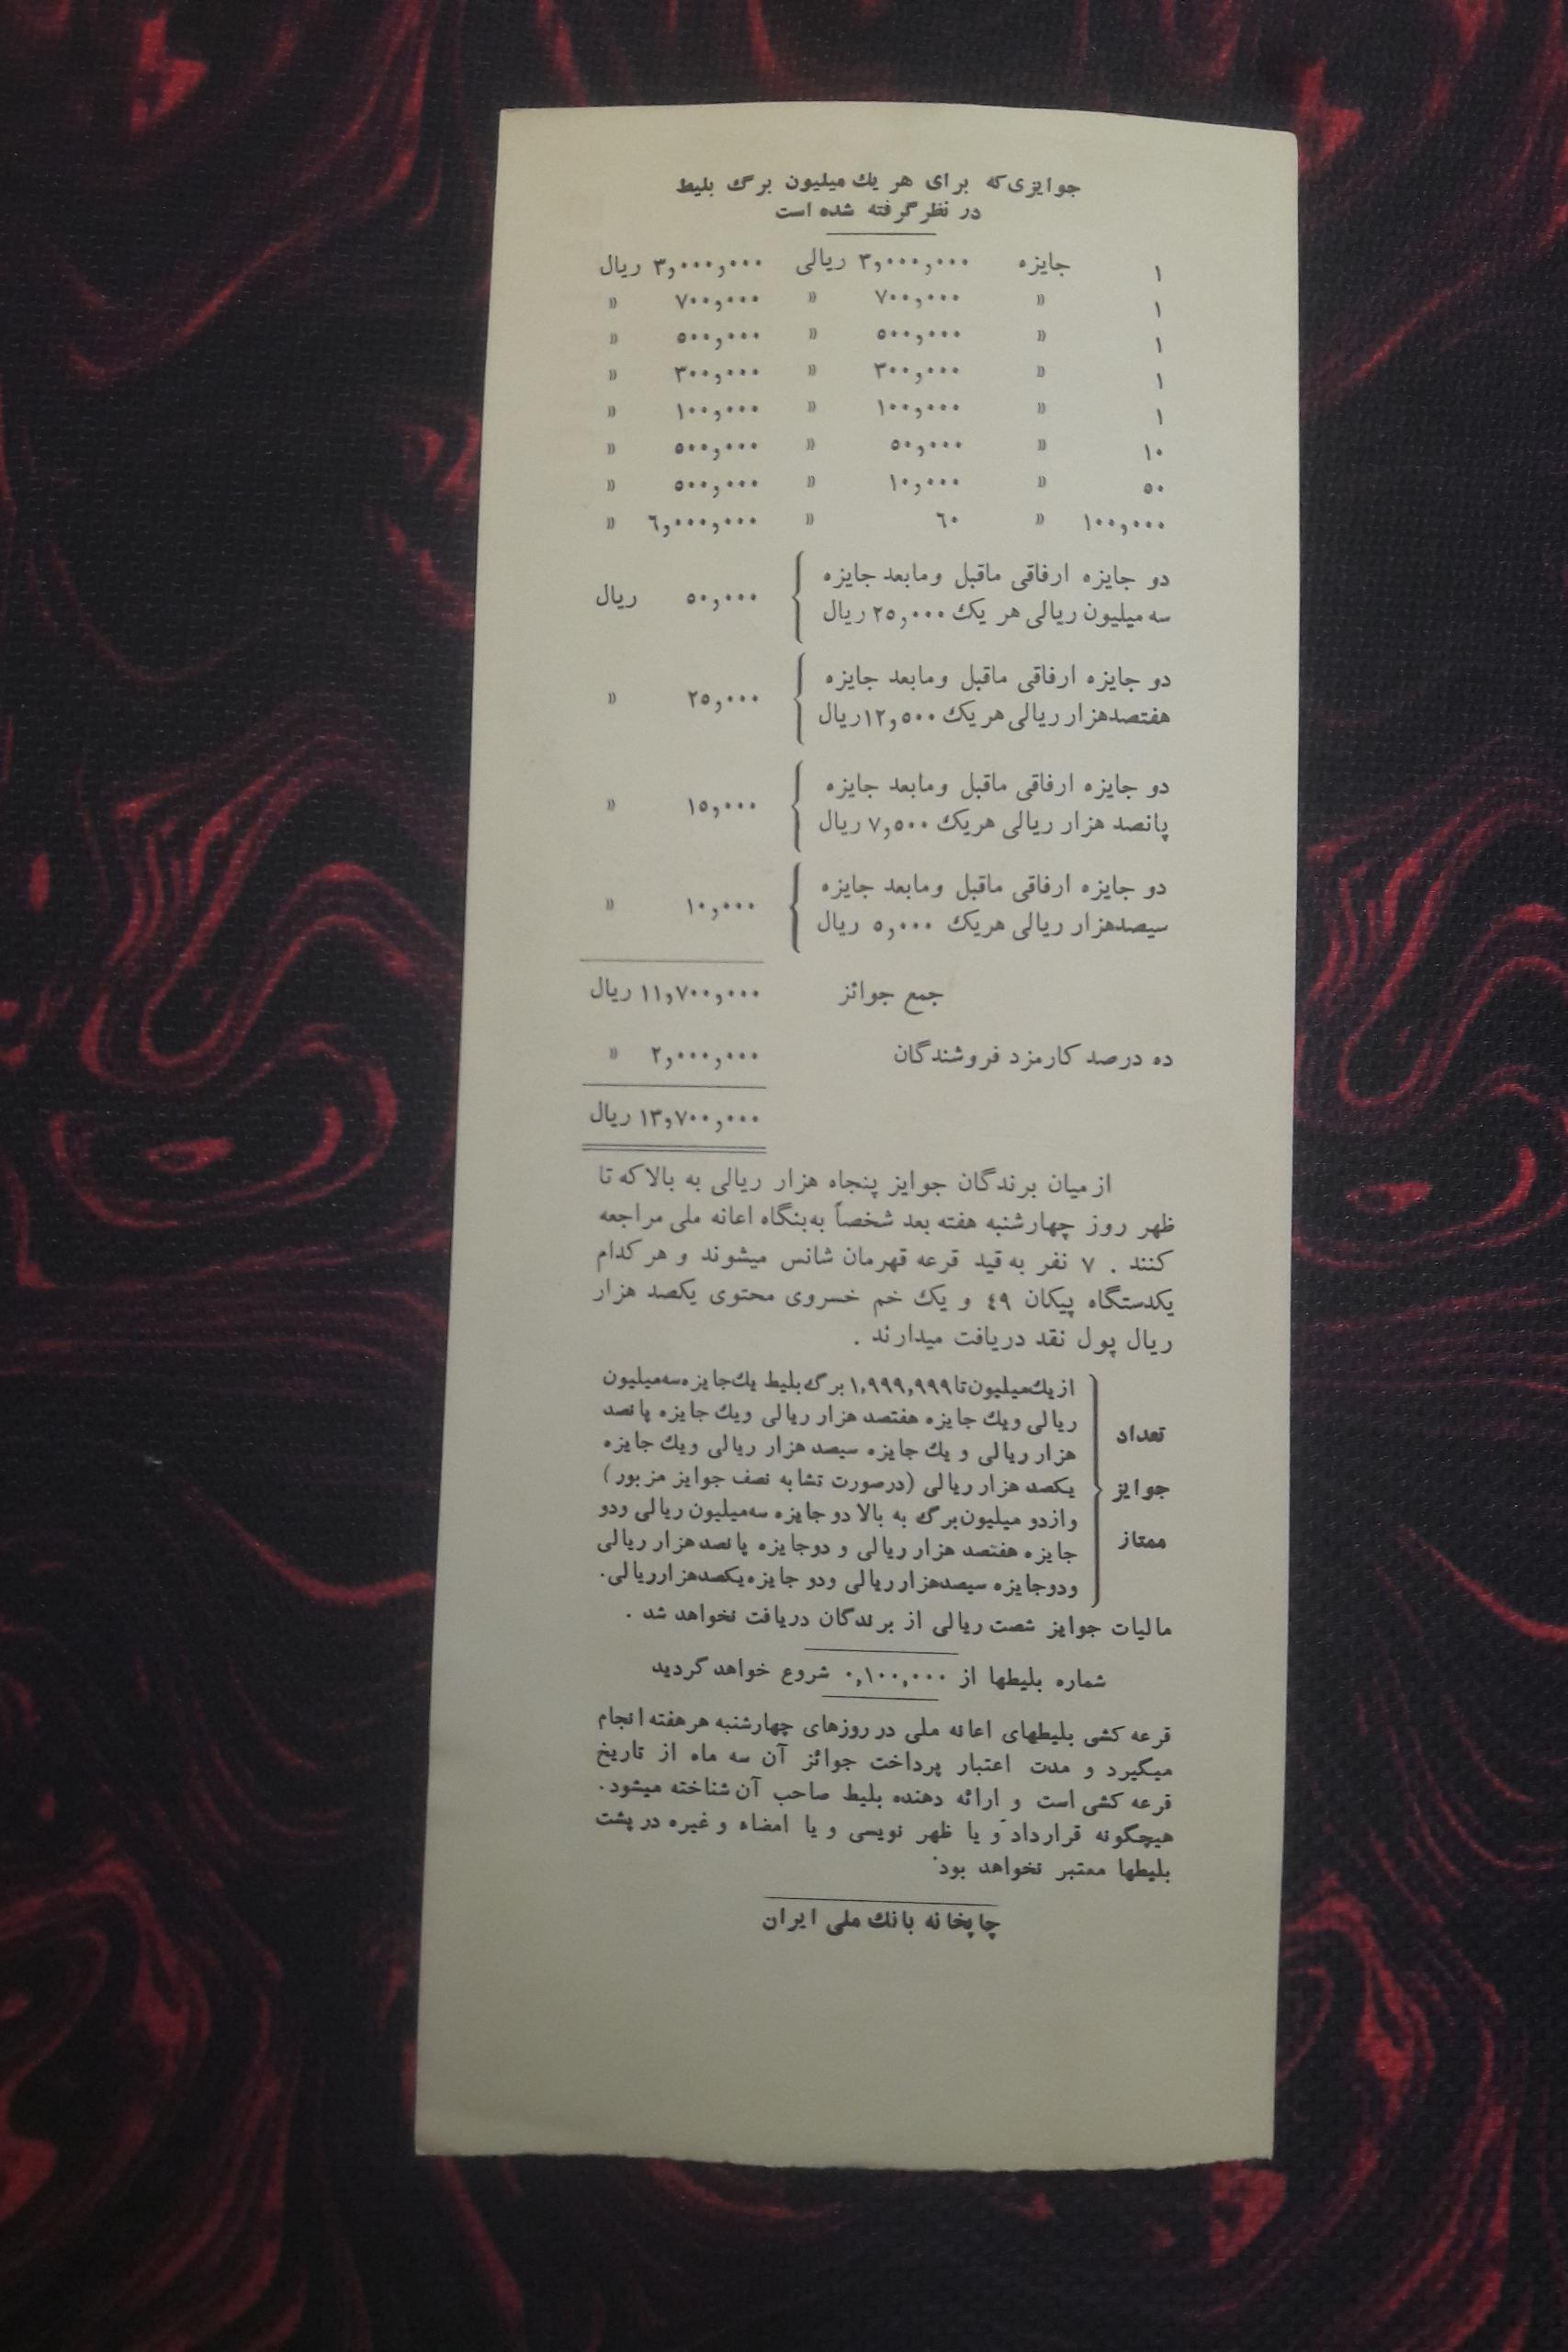 جوایزی که برای هر یك میلیون برگ بلیط
در نظر گرفته شده است
۱ جایزه ۳,۰۰۰,۰۰۰ ریالی ۳,۰۰۰,۰۰۰ ریال
۱ » ۷۰۰,۰۰۰ » ۷۰۰,۰۰۰ »
۱ » ۵۰۰,۰۰۰ » ۵۰۰,۰۰۰ »
۱ » ۳۰۰,۰۰۰ » ۳۰۰,۰۰۰ »
۱ » ۱۰۰,۰۰۰ » ۱۰۰,۰۰۰ »
۱۰ » ۵۰,۰۰۰ » ۵۰۰,۰۰۰ »
۵۰ » ۱۰,۰۰۰ » ۵۰۰,۰۰۰ »
۱۰۰,۰۰۰ » ٦۰ » ٦,۰۰۰,۰۰۰ »
دو جایزه ارفاقی ماقبل ومابعد جایزه
سه میلیون ریالی هر یك ۲۵,۰۰۰ ریال ۵۰,۰۰۰ ریال
دو جایزه ارفاقی ماقبل ومابعد جایزه
هفتصدهزار ریالی هریك ۱۲,۵۰۰ ریال ۲۵,۰۰۰ »
دو جایزه ارفاقی ماقبل ومابعد جایزه
پانصد هزار ریالی هریك ۷,۵۰۰ ریال ۱۵,۰۰۰ »
دو جایزه ارفاقی ماقبل ومابعد جایزه
سیصدهزار ریالی هریك ۵,۰۰۰ ریال ۱۰,۰۰۰ »
جمع جوائز ۱۱,۷۰۰,۰۰۰ ریال
ده درصد کارمزد فروشندگان ۲,۰۰۰,۰۰۰ »
۱۳,۷۰۰,۰۰۰ ریال
از میان برندگان جوایز پنجاه هزار ریالی به بالا که تا
ظهر روز چهارشنبه هفته بعد شخصاً به بنگاه اعانه ملی مراجعه
کنند . ۷ نفر به قید قرعه قهرمان شانس میشوند و هر کدام
یکدستگاه پیکان ٤۹ و یك خم خسروی محتوی یکصد هزار
ریال پول نقد دریافت میدارند .
تعداد جوایز ممتاز
از یك میلیون تا ۱,۹۹۹,۹۹۹ برگ بلیط یك جایزه سه میلیون
ریالی ویك جایزه هفتصد هزار ریالی ویك جایزه پانصد
هزار ریالی و یك جایزه سیصد هزار ریالی ویك جایزه
یکصد هزار ریالی (درصورت تشابه نصف جوایز مزبور)
وازدو میلیون برگ به بالا دو جایزه سه میلیون ریالی ودو
جایزه هفتصد هزار ریالی و دوجایزه پانصد هزار ریالی
ودوجایزه سیصدهزار ریالی ودو جایزه یکصدهزار ریالی.
مالیات جوایز شصت ریالی از برندگان دریافت نخواهد شد .
شماره بلیطها از ۰,۱۰۰,۰۰۰ شروع خواهد گردید
قرعه کشی بلیطهای اعانه ملی در روزهای چهارشنبه هر هفته انجام
میگیرد و مدت اعتبار پرداخت جوائز آن سه ماه از تاریخ
قرعه کشی است و ارائه دهنده بلیط صاحب آن شناخته میشود.
هیچگونه قرارداد و یا ظهر نویسی و یا امضاء و غیره در پشت
بلیطها معتبر نخواهد بود.
چاپخانه بانك ملی ایران